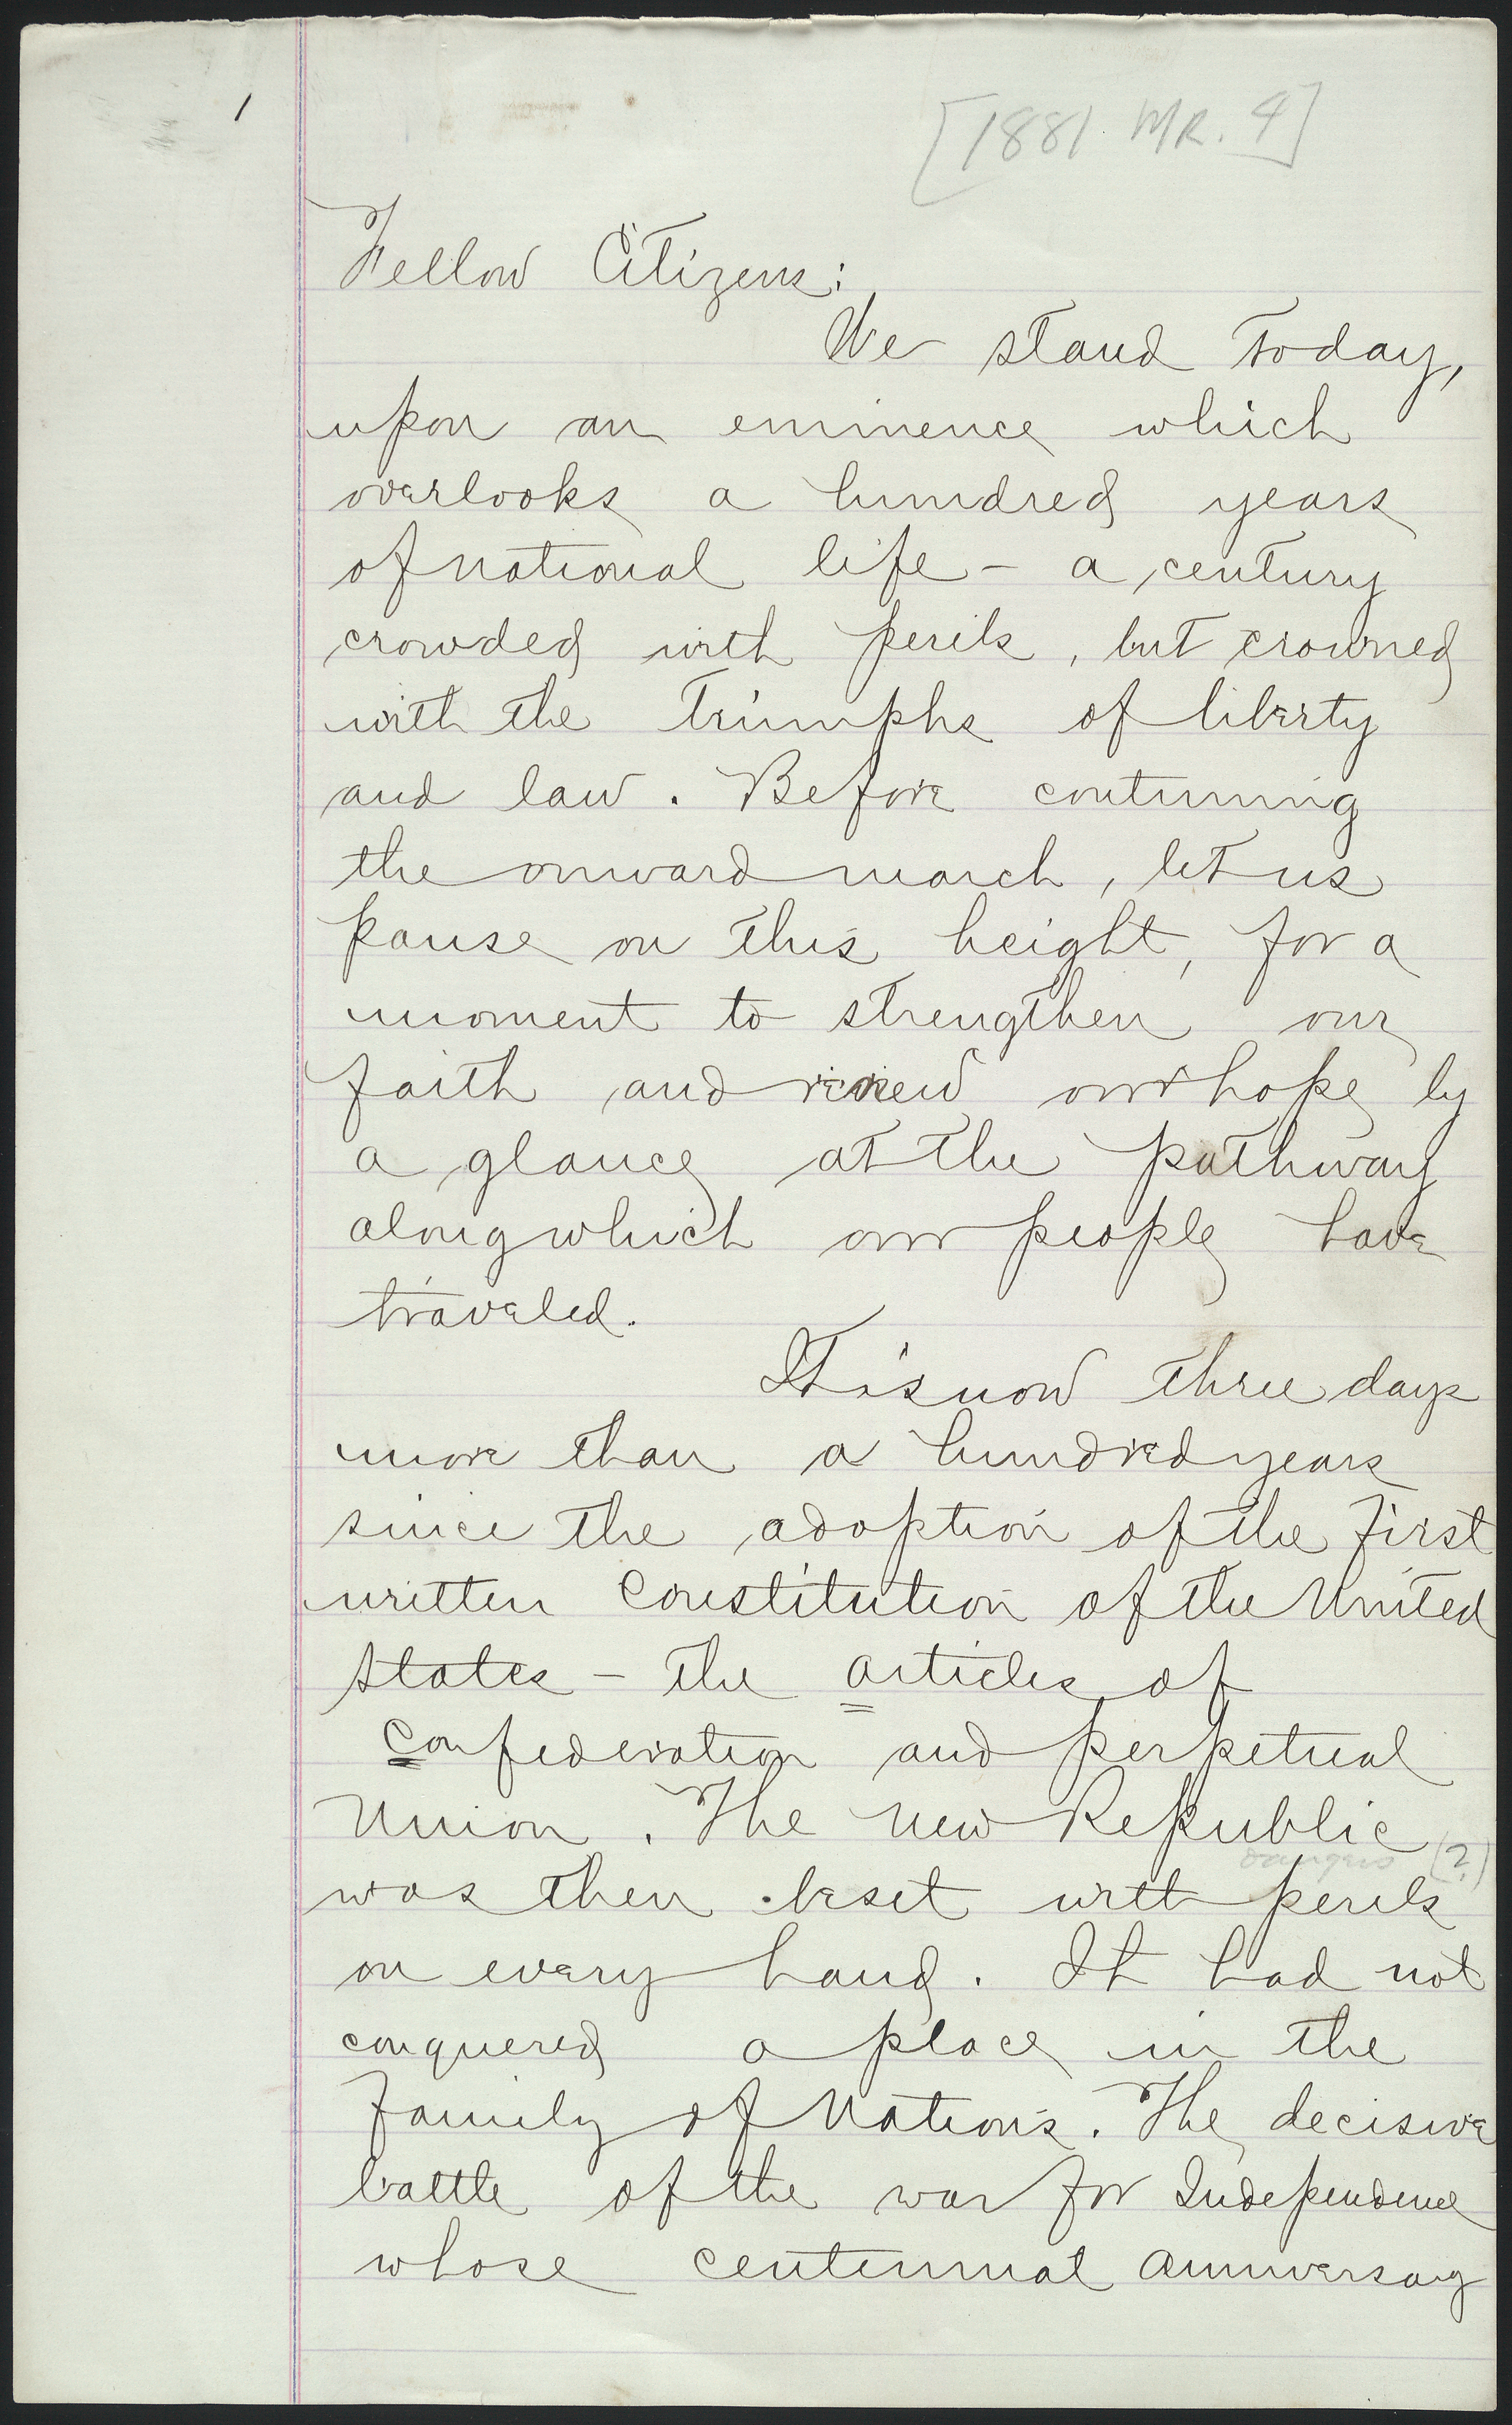 1
[1881. MR. 4]
Fellow Citizens:
We stand today,
upon an eminence which
overlooks a hundred years
of national life - a century
crowded with perils, but crowned
with the triumphs of liberty
and law. Before continuing
the onward march, let us
pause on this height, for a
moment to strengthen our
faith and renew our hope by
a glance at the pathway
along which our people have
traveled.
It is now three days
more than a hundred years
since the adoption of the first
written Constitution of the United
States - the articles of
Confederation and perpetual
Union. The new Republic
dangers (?)
was then beset with perils
on every hand. It had not
conquered a place in the
Family of Nations. The decisive
battle of the war for Independence
whose centennial anniversary